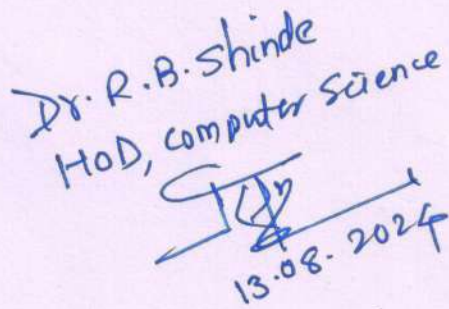 Dr. R. B. Shinde
HOD, computer science
13.08.2024